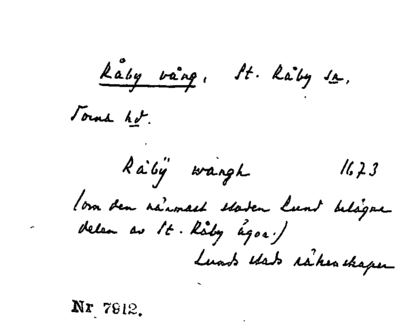 Råby vång, St. Råby sn,
Torna hd.
Råbÿ wångh 1673
(om den närmast staden Lund belägna
delen av St. Råby ägor.)
Lunds stads räkenskaper
Nr 7912.